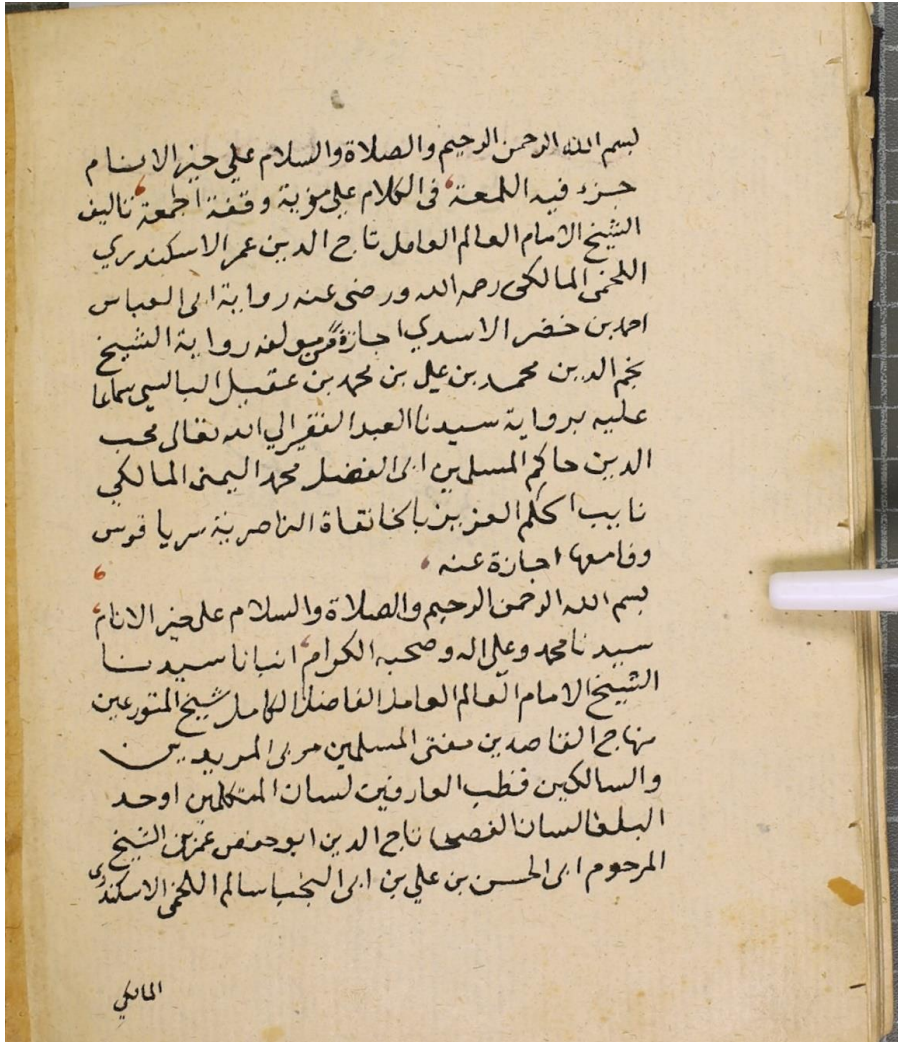 بسم الله الرحمن الرحيم والصلاة والسلام علي خير الانام
جزء فيه اللمعة في الكلام علي مزية وقفة الجمعة تاليف
الشيخ الامام العالم العامل تاج الدين عمر الاسكندري
اللخمي المالكي رحمه الله ورضي عنه رواية ابي العباس
احمد بن خضر الاسدي اجازة من مولفه رواية الشيخ
نجم الدين محمد بن علي بن محمد بن عقيل البالسي سماعا
عليه برواية سيدنا العبد الفقير الي الله تعالى محب
الدين حاكم المسلمين ابي الفضل محمد اليمني المالكي
نايب الحكم العزيز بالخانقاة الناصرية سرياقوس
اجازة عنه
بسم الله الرحمن الرحيم والصلاة والسلام على خير الانام
سيدنا محمد وعلى اله وصحبه الكرام انبانا سيدنا
الشيخ الامام العالم العامل الفاضل الكامل شيخ المتورعين
منهاج القاصدين مفتي المسلمين مربي المريدين
والسالكين قطب العارفين لسان المتكلمين اوحد
البلغا لسان الفصحا تاج الدين ابو حفص عمر بن الشيخ
المرحوم ابي الحسن بن علي بن ابي النجيا سالم اللخمي الاسكندري
المالكي